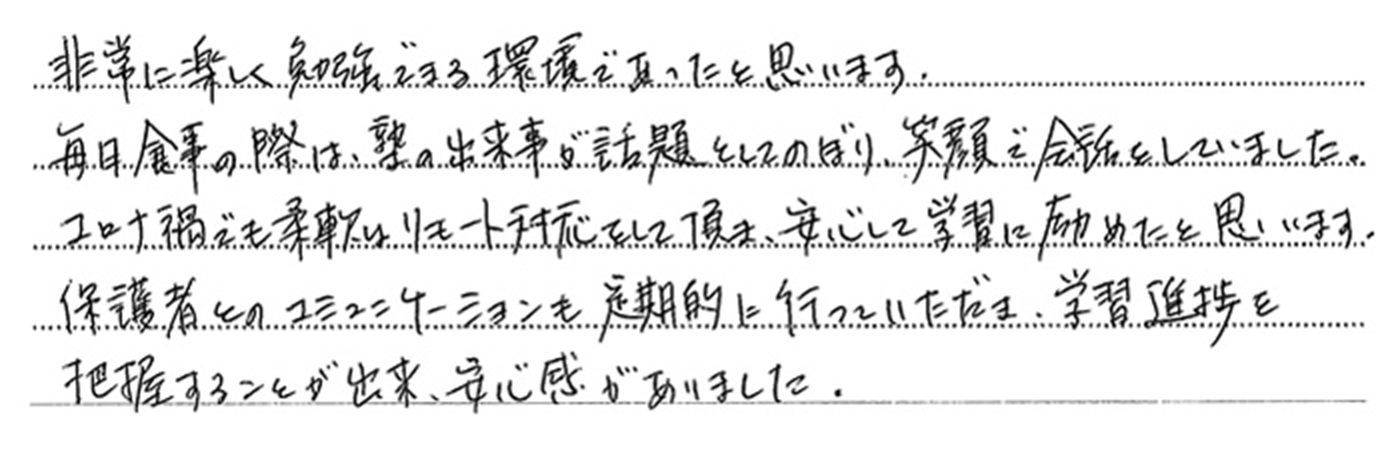 非常に楽しく勉強できる環境であったと思います。
毎日食事の際は、塾の出来事が話題としてのぼり、笑顔で会話をしていました。
コロナ禍でも柔軟にリモート対応をして頂き、安心して学習に励めたと思います。
保護者とのコミュニケーションも定期的に行っていただき、学習進捗を
把握することが出来、安心感がありました。